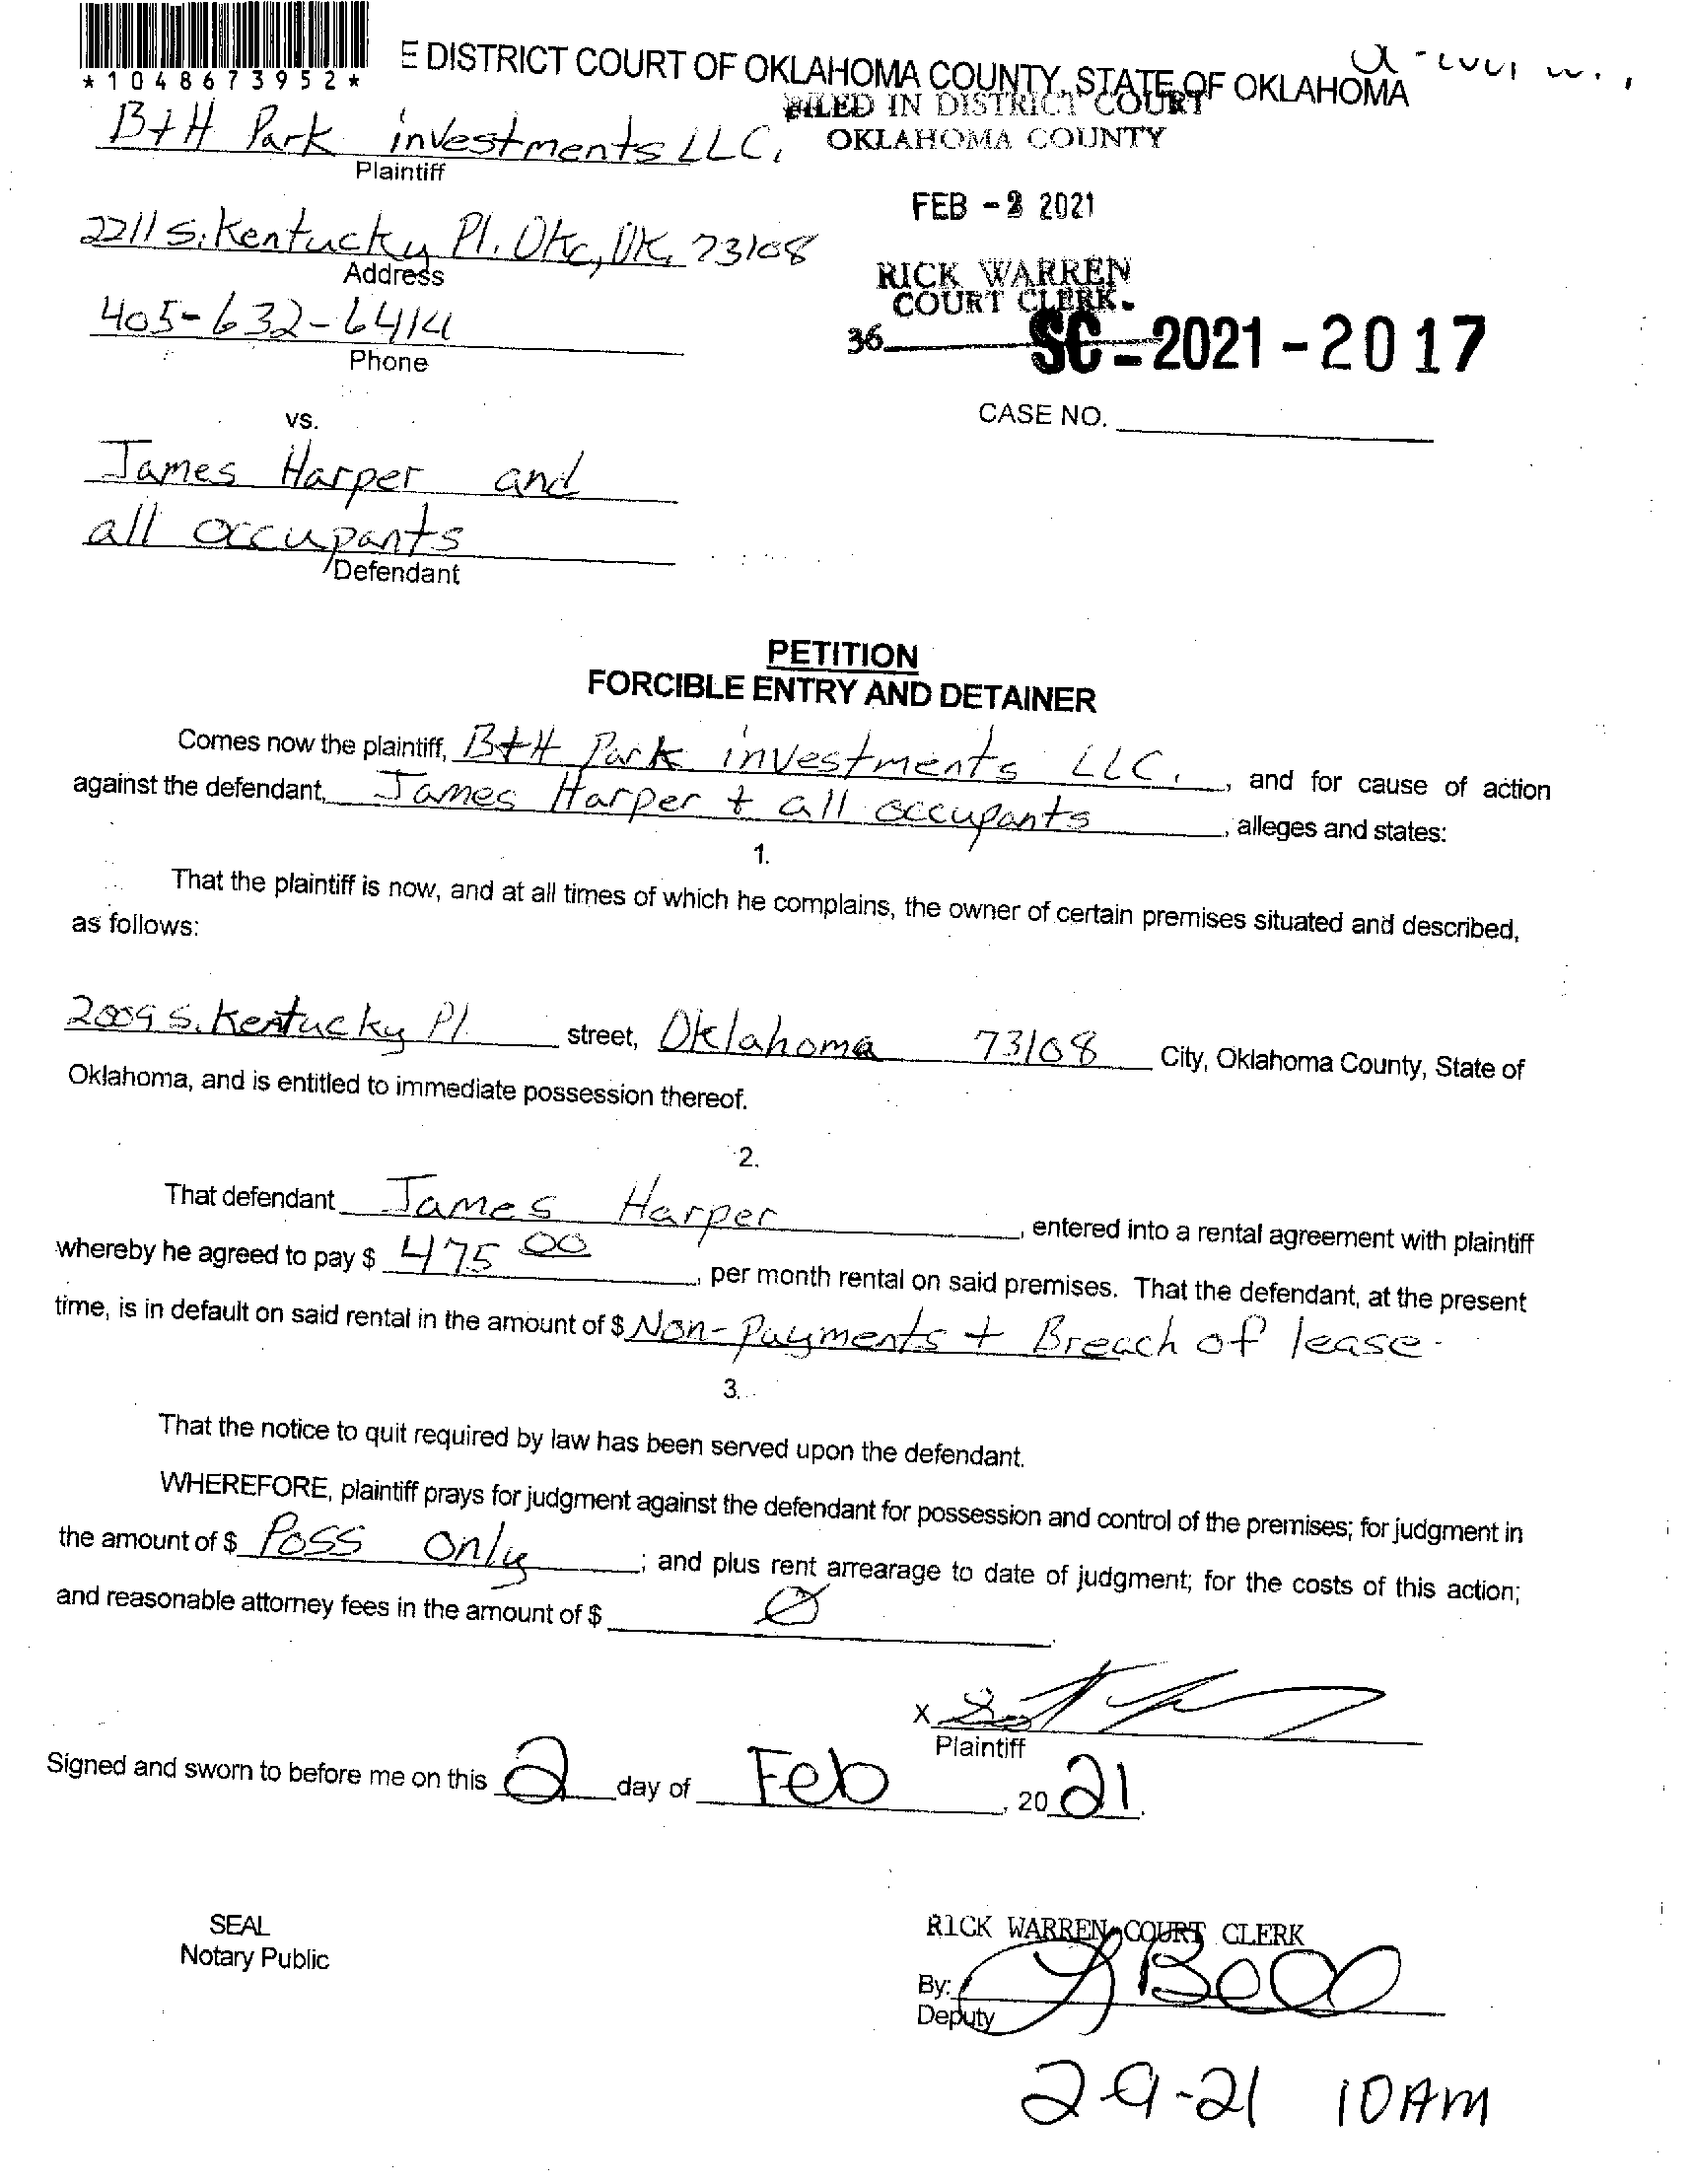 *1048673952*
E DISTRICT COURT OF OKLAHOMA COUNTY, STATE OF OKLAHOMA
FILED IN DISTRICT COURT
OKLAHOMA COUNTY
B+H Park investments LLC,
Plaintiff
FEB -2 2021
2211 S. Kentucky Pl. Okc, OK, 73108
Address
RICK WARREN
COURT CLERK
405-632-6414
Phone
36
SC-2021-2017
CASE NO.
vs.
James Harper and
all occupants
Defendant
PETITION
FORCIBLE ENTRY AND DETAINER
Comes now the plaintiff, B+H Park investments LLC. , and for cause of action
against the defendant, James Harper + all occupants , alleges and states:
1.
That the plaintiff is now, and at all times of which he complains, the owner of certain premises situated and described,
as follows:
2009 S. Kentucky Pl street, Oklahoma 73108 City, Oklahoma County, State of
Oklahoma, and is entitled to immediate possession thereof.
2.
That defendant James Harper , entered into a rental agreement with plaintiff
whereby he agreed to pay $ 475 00 , per month rental on said premises. That the defendant, at the present
time, is in default on said rental in the amount of $ Non-Payments + Breach of lease.
3.
That the notice to quit required by law has been served upon the defendant.
WHEREFORE, plaintiff prays for judgment against the defendant for possession and control of the premises; for judgment in
the amount of $ Poss only ; and plus rent arrearage to date of judgment; for the costs of this action;
and reasonable attorney fees in the amount of $ Ø
X
Plaintiff
Signed and sworn to before me on this 2 day of Feb , 20 21.
SEAL
Notary Public
RICK WARREN, COURT CLERK
By: Bell
Deputy
2-9-21 10AM